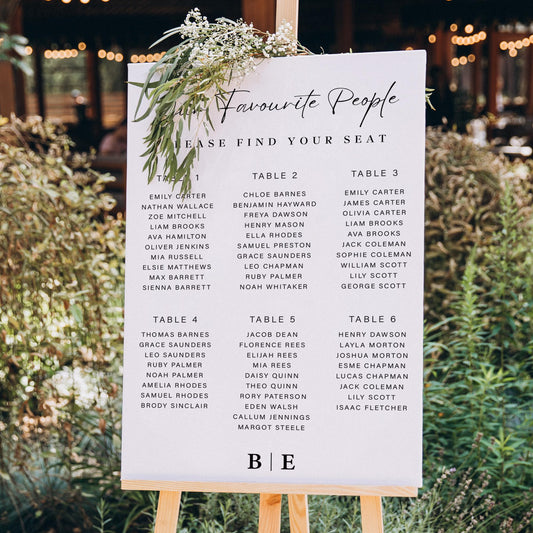 Favourite People
FIND YOUR SEAT
TABLE 1
EMILY CARTER
NATHAN WALLACE
ZOE MITCHELL
LIAM BROOKS
AVA HAMILTON
OLIVER JENKINS
MIA RUSSELL
ELSIE MATTHEWS
MAX BARRETT
SIENNA BARRETT
TABLE 2
CHLOE BARNES
BENJAMIN HAYWARD
FREYA DAWSON
HENRY MASON
ELLA RHODES
SAMUEL PRESTON
GRACE SAUNDERS
LEO CHAPMAN
RUBY PALMER
NOAH WHITAKER
TABLE 3
EMILY CARTER
JAMES CARTER
OLIVIA CARTER
LIAM BROOKS
AVA BROOKS
JACK COLEMAN
SOPHIE COLEMAN
WILLIAM SCOTT
LILY SCOTT
GEORGE SCOTT
TABLE 4
THOMAS BARNES
GRACE SAUNDERS
LEO SAUNDERS
RUBY PALMER
NOAH PALMER
AMELIA RHODES
SAMUEL RHODES
BRODY SINCLAIR
TABLE 5
JACOB DEAN
FLORENCE REES
ELIJAH REES
MIA REES
DAISY QUINN
THEO QUINN
RORY PATERSON
EDEN WALSH
CALLUM JENNINGS
MARGOT STEELE
TABLE 6
HENRY DAWSON
LAYLA MORTON
JOSHUA MORTON
ESME CHAPMAN
LUCAS CHAPMAN
JACK COLEMAN
LILY SCOTT
ISAAC FLETCHER
B | E